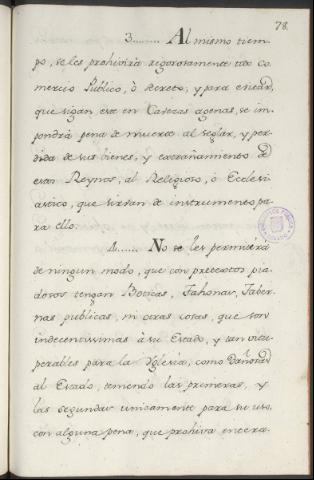 78.
3........ Al mismo tiem-
po, se les prohivirà rigorosamente tdo Co-
mercio Publico, ò secreto, y para evitar,
que sigan este en Cavezas agenas, se im-
pondrà pena de muerte al seglar, y per-
dida de sus bienes, y extrañamiento de
estos Reynos, al Religioso, ò Eclesi-
astico, que sirban de instrumento pa-
ra ello.
4...... No se les permitirà
de ningun modo, que con pretextos pia-
dosos tengan Boticas, Tahonas, Taber-
nas publicas, ni otras cosas, que son
indecentissimas à su Estado, y tan vitu-
perables para la Yglesia, como dañosas
al Estado, teniendo las primeras, y
las segundas unicamente para su uso,
con alguna pena, que prohiva entera-